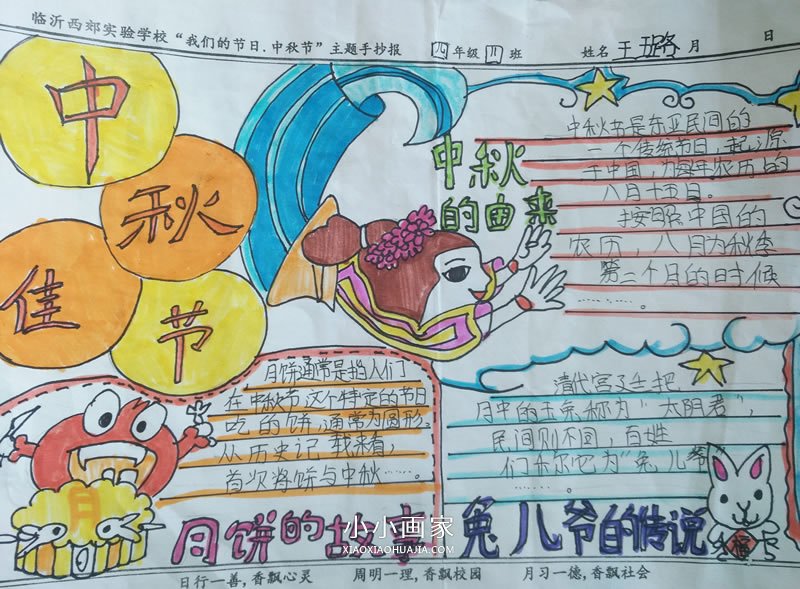 临沂西郊实验学校“我们的节日.中秋节”主题手抄报 四年级四班 姓名 王 月 日
中
秋
佳
节
中秋
的由来
中秋节是东亚民间的
一个传统节日，起源
于中国，为每年农历的
八月十五日。
按照中国的
农历，八月为秋季
第二个月的时候
……。
月饼通常是指人们
在中秋节这个特定的节日
吃的饼，通常为圆形。
从历史记载来看，
首次将饼与中秋……。
月
月饼的故事
清代宫廷把
月中的玉兔称为“太阴君”，
民间则不同，百姓
们称它为“兔儿爷”
……。
兔儿爷的传说
福
小小画家
XIAOXIAOHUAJIA.COM
日行一善，香飘心灵 周明一理，香飘校园 月习一德，香飘社会